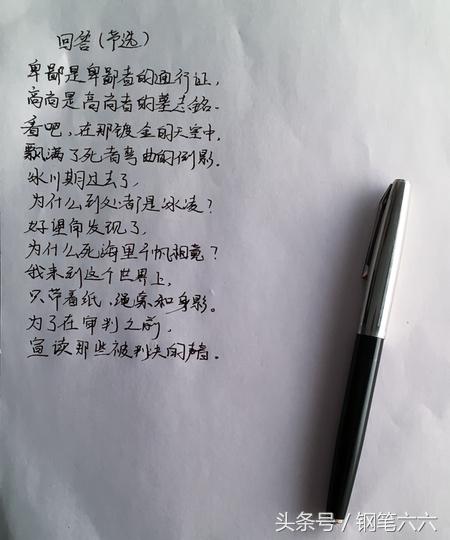 回答(节选)
卑鄙是卑鄙者的通行证,
高尚是高尚者的墓志铭.
看吧,在那镀金的天空中,
飘满了死者弯曲的倒影.
冰川期过去了,
为什么到处都是冰凌?
好望角发现了,
为什么死海里千帆相竞?
我来到这个世界上,
只带着纸、绳索和身影。
为了在审判之前,
宣读那些被判决的声音。
头条号/钢笔六六